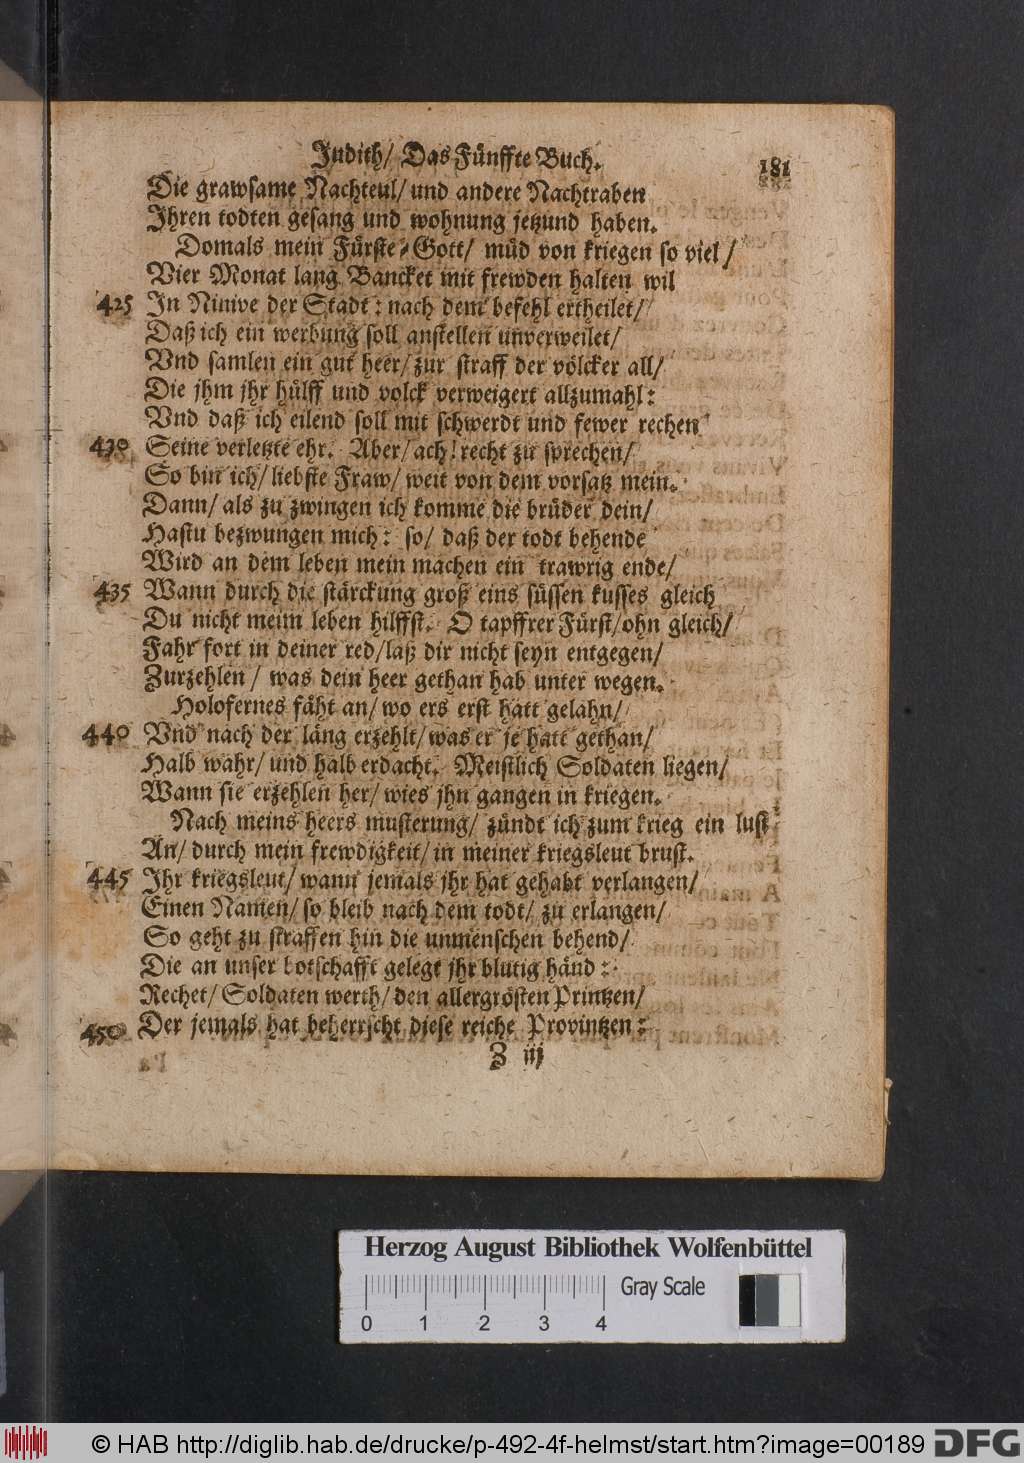 Judith/ Das Fünffte Buch. 181
Die grawsame Nachteul/ und andere Nachtraben
Jhren todten gesang und wohnung jetzund haben.
Domals mein Fürste-Gott/ müd von kriegen so viel/
Vier Monat lang Bancket mit frewden halten wil
425 Jn Ninive der Stadt: nach dem befehl ertheilet/
Daß ich ein werbung soll anstellen unverweilet/
Vnd samlen ein gut heer/ zur straff der völcker all/
Die jhm jhr hülff und volck verweigert allzumahl:
Vnd daß ich eilend soll mit schwerdt und fewer rechen
430 Seine verletzte ehr. Aber/ ach! recht zu sprechen/
So bin ich/ liebste Fraw/ weit von dem vorsatz mein.
Dann/ als zu zwingen ich komme die brüder dein/
Hastu bezwungen mich: so/ daß der todt behende
Wird an dem leben mein machen ein trawrig ende/
435 Wann durch die stärckung groß eins süssen kusses gleich
Du nicht meim leben hilffst. O tapffrer Fürst/ ohn gleich/
Fahr fort in deiner red/ laß dir nicht seyn entgegen/
Zurzehlen/ was dein heer gethan hab unter wegen.
Holofernes fäht an/ wo ers erst hatt gelahn/
440 Vnd nach der läng erzehlt/ was er je hatt gethan/
Halb wahr/ und halb erdacht. Meistlich Soldaten liegen/
Wann sie erzehlen her/ wies jhn gangen in kriegen.
Nach meins heers musterung/ zündt ich zum krieg ein lust
An/ durch mein frewdigkeit/ in meiner kriegsleut brust.
445 Jhr kriegsleut/ wann jemals jhr hat gehabt verlangen/
Einen Namen/ so bleib nach dem todt/ zu erlangen/
So geht zu straffen hin die unmenschen behend/
Die an unser botschafft gelegt jhr blutig händ:
Rechet/ Soldaten werth/ den allergrösten Printzen/
450 Der jemals hat beherrscht diese reiche Provintzen:
Z iij
Herzog August Bibliothek Wolfenbüttel
0 1 2 3 4 Gray Scale
© HAB http://diglib.hab.de/drucke/p-492-4f-helmst/start.htm?image=00189 DFG